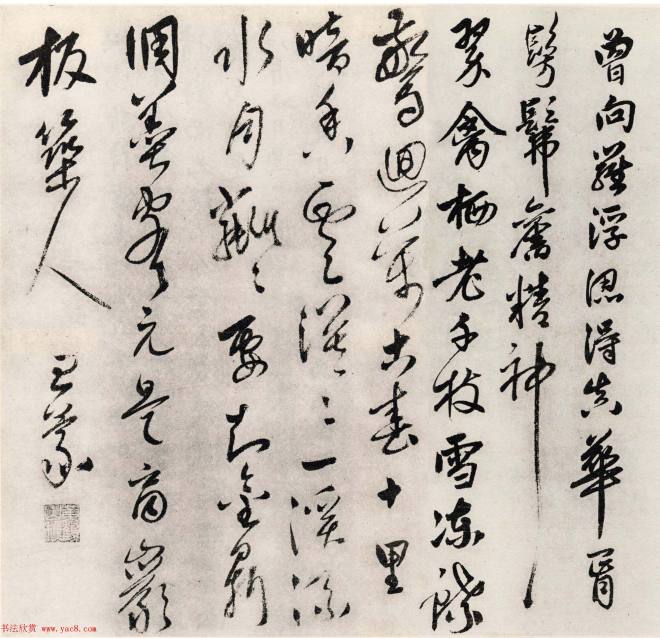 曾向羅浮得真華胥
髣髴舊精神
翠禽栖老千枝雪凍蝶
驚迴萬古春十里
暗香雲漠〻一溪流
水月要知金鼎
調羹客元是商巖
板築人
王蒙
书法欣赏 www.yac8.com